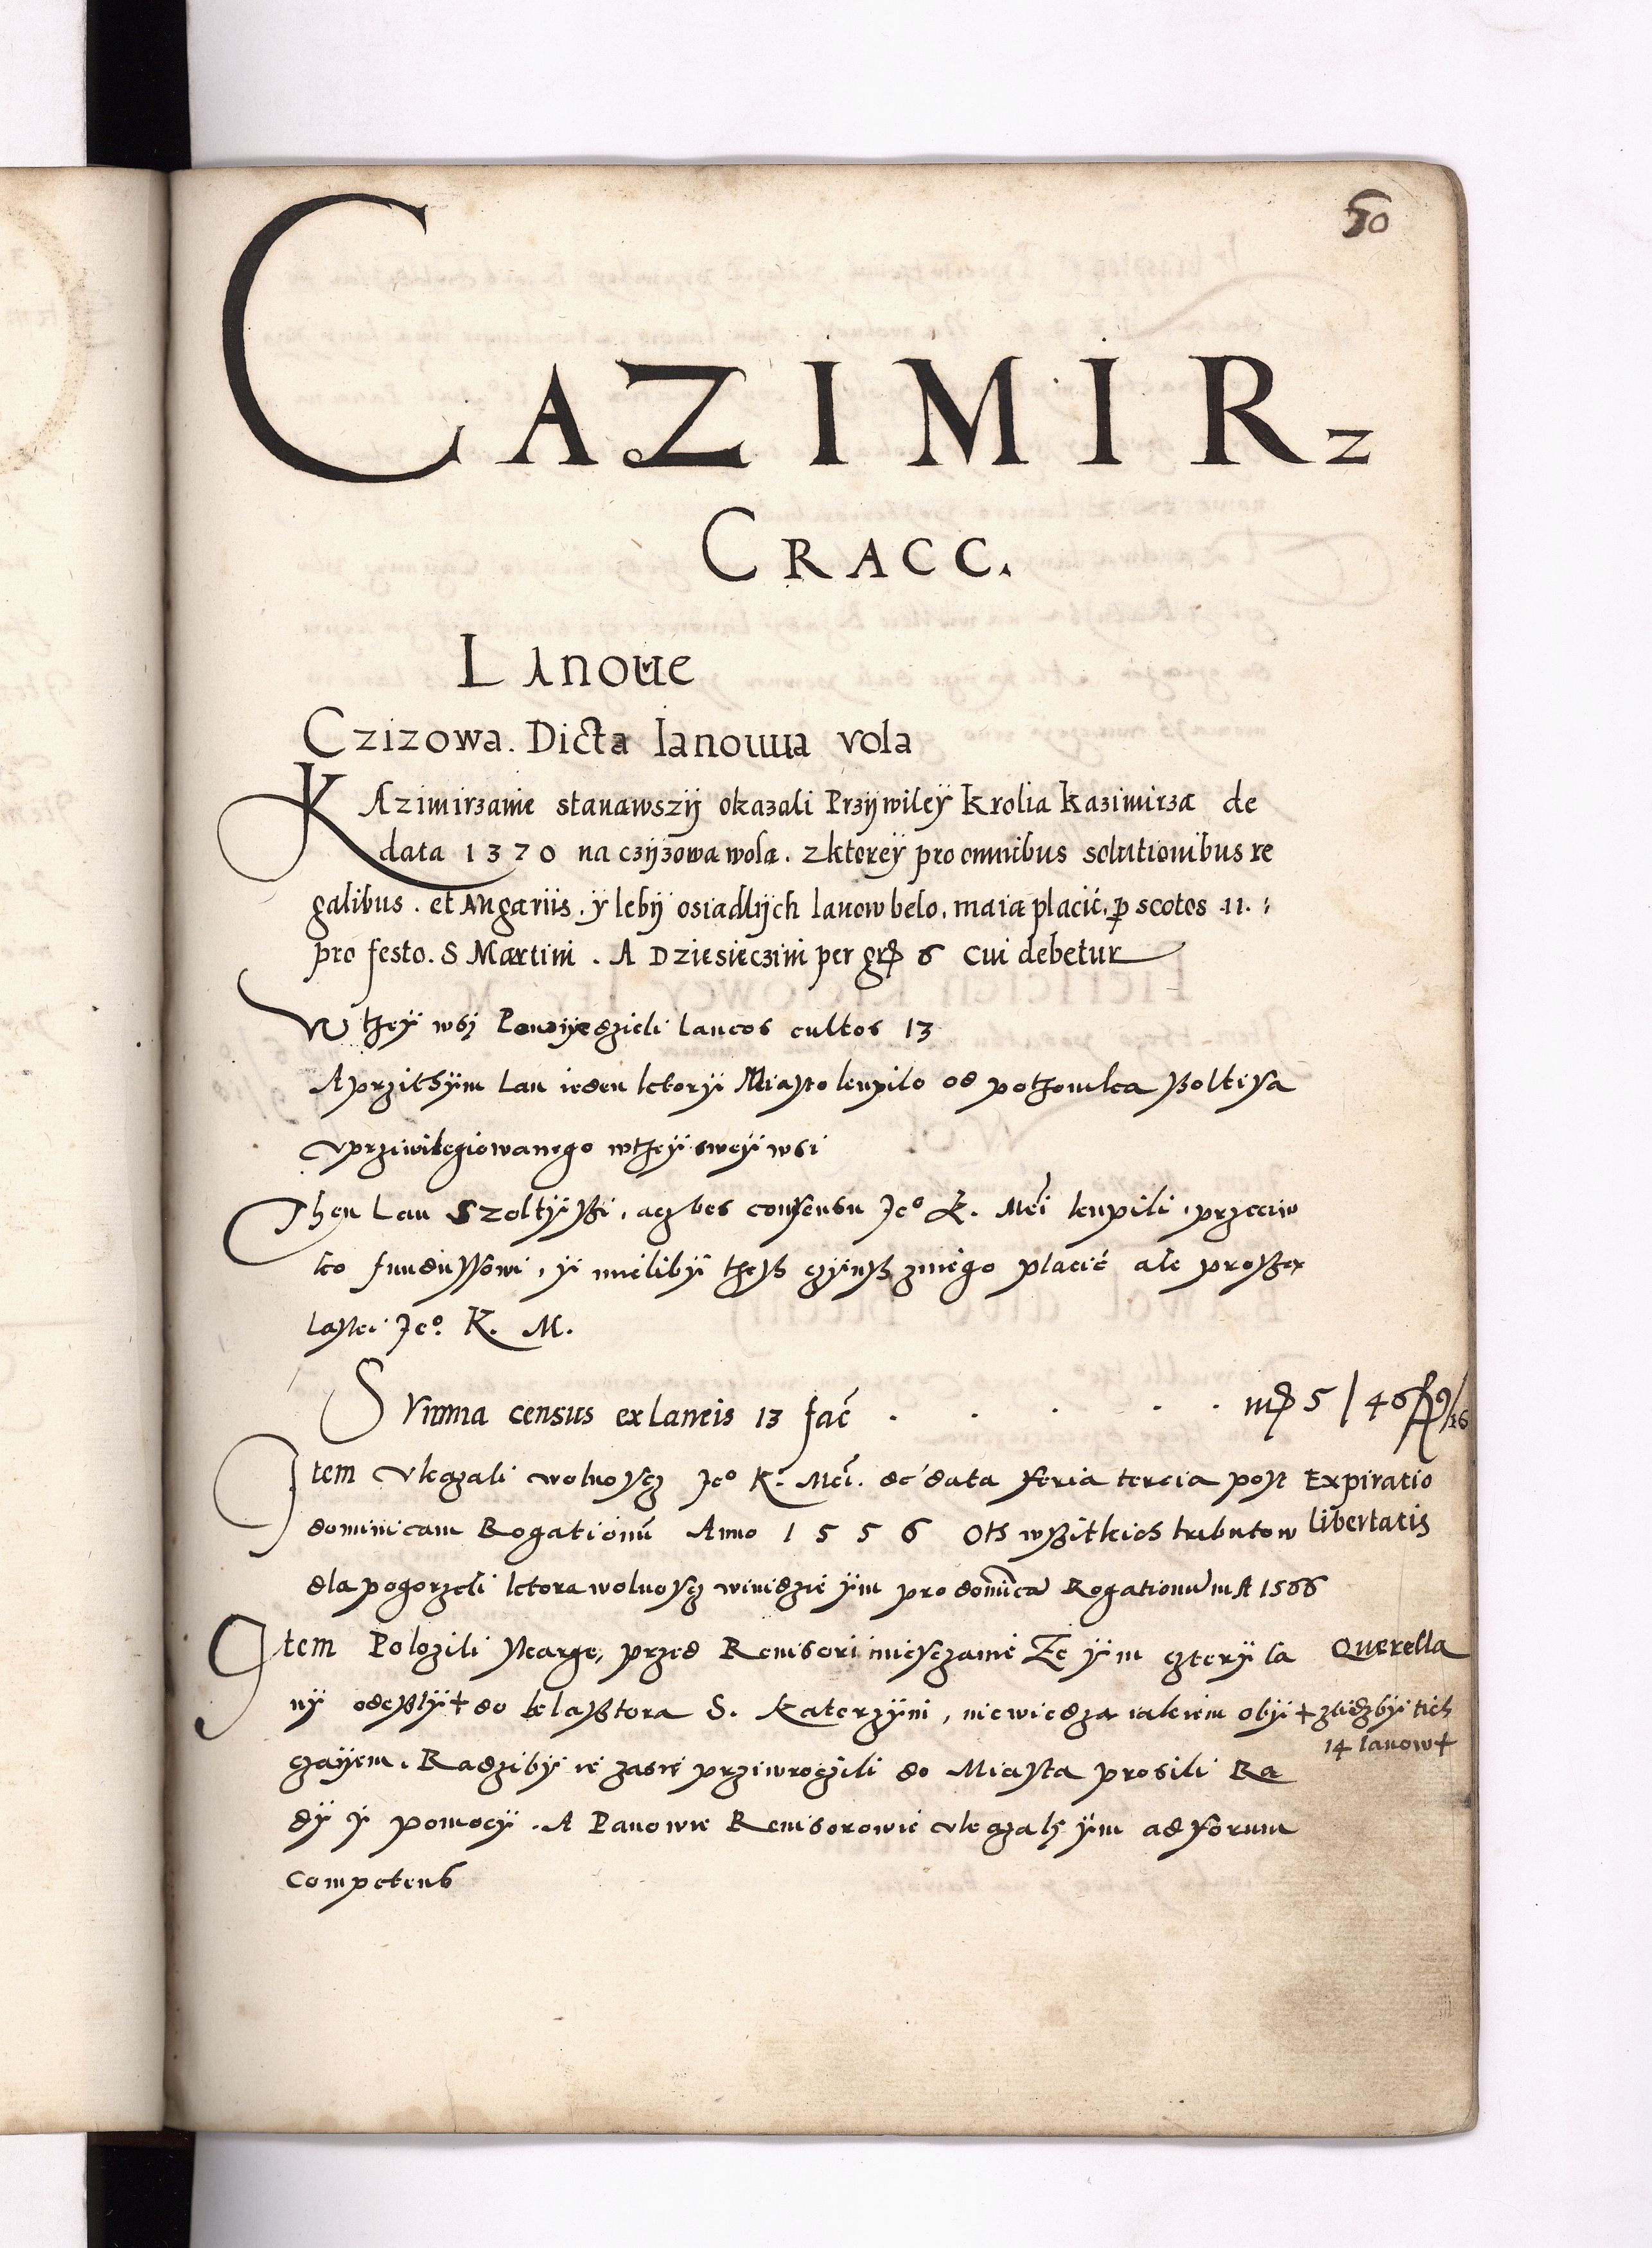 50
CAZIMIRz
CRACC.
Lanoue
Czizowa. Dicta Ianowa vola
KAzimirzanie stanawszÿ okazali Przÿwileÿ krolia kazimirza de
data 1370 na czÿzowa wola. z ktoreÿ pro omnibus solutionibus re
galibus. et Angariis. ÿ lebÿ osiadlÿch lanow belo. maia placić. ꝑ scotos 11.
pro festo. S Martini. A Dziesieczini per gꝛ 6 Cui debetur
W theÿ wsi Powÿedzieli laneos cultos 13
A przithÿm lan ieden ktorÿ Miasto kupilo od pothomka ßoltisa
vprziwilegiowanego wtheÿ sweÿ wsi
Then Lan Szoltÿßi, acz bes consensu Je° K. Mći kupili, przeciw
ko fundussowi, ÿ mielibÿ theß czÿnß zniego placić ale proßą
laski Je°. K. M.
Summa census ex laneis 13 fać . . . . . mꝛ 5 / 46
Item vkazali wolnoscz Je° K. Mći. de data feria tercia post
dominicam Rogationū Anno 1556 Oth wßitkich tributow
dla pogorzeli ktora wolnoscz winidzie ÿm pro dominica Rogationum A 1566
Expiratio
libertatis
Item Polozili skargę, przed Reuisori miesczanie Ze ÿm czterÿ la
nÿ odeßlÿ + do klaßtora S. Katerzÿni, niewiedza iakiem obÿ
czaÿem. Radzibÿ ie zasie przÿwroczili do Miasta prosili Ra
dÿ ÿ pomocÿ. A Panowie Reuisorowie vkazali ÿm ad forum
Competens
Querella
+ zlidzbÿ tich
14 lanow +